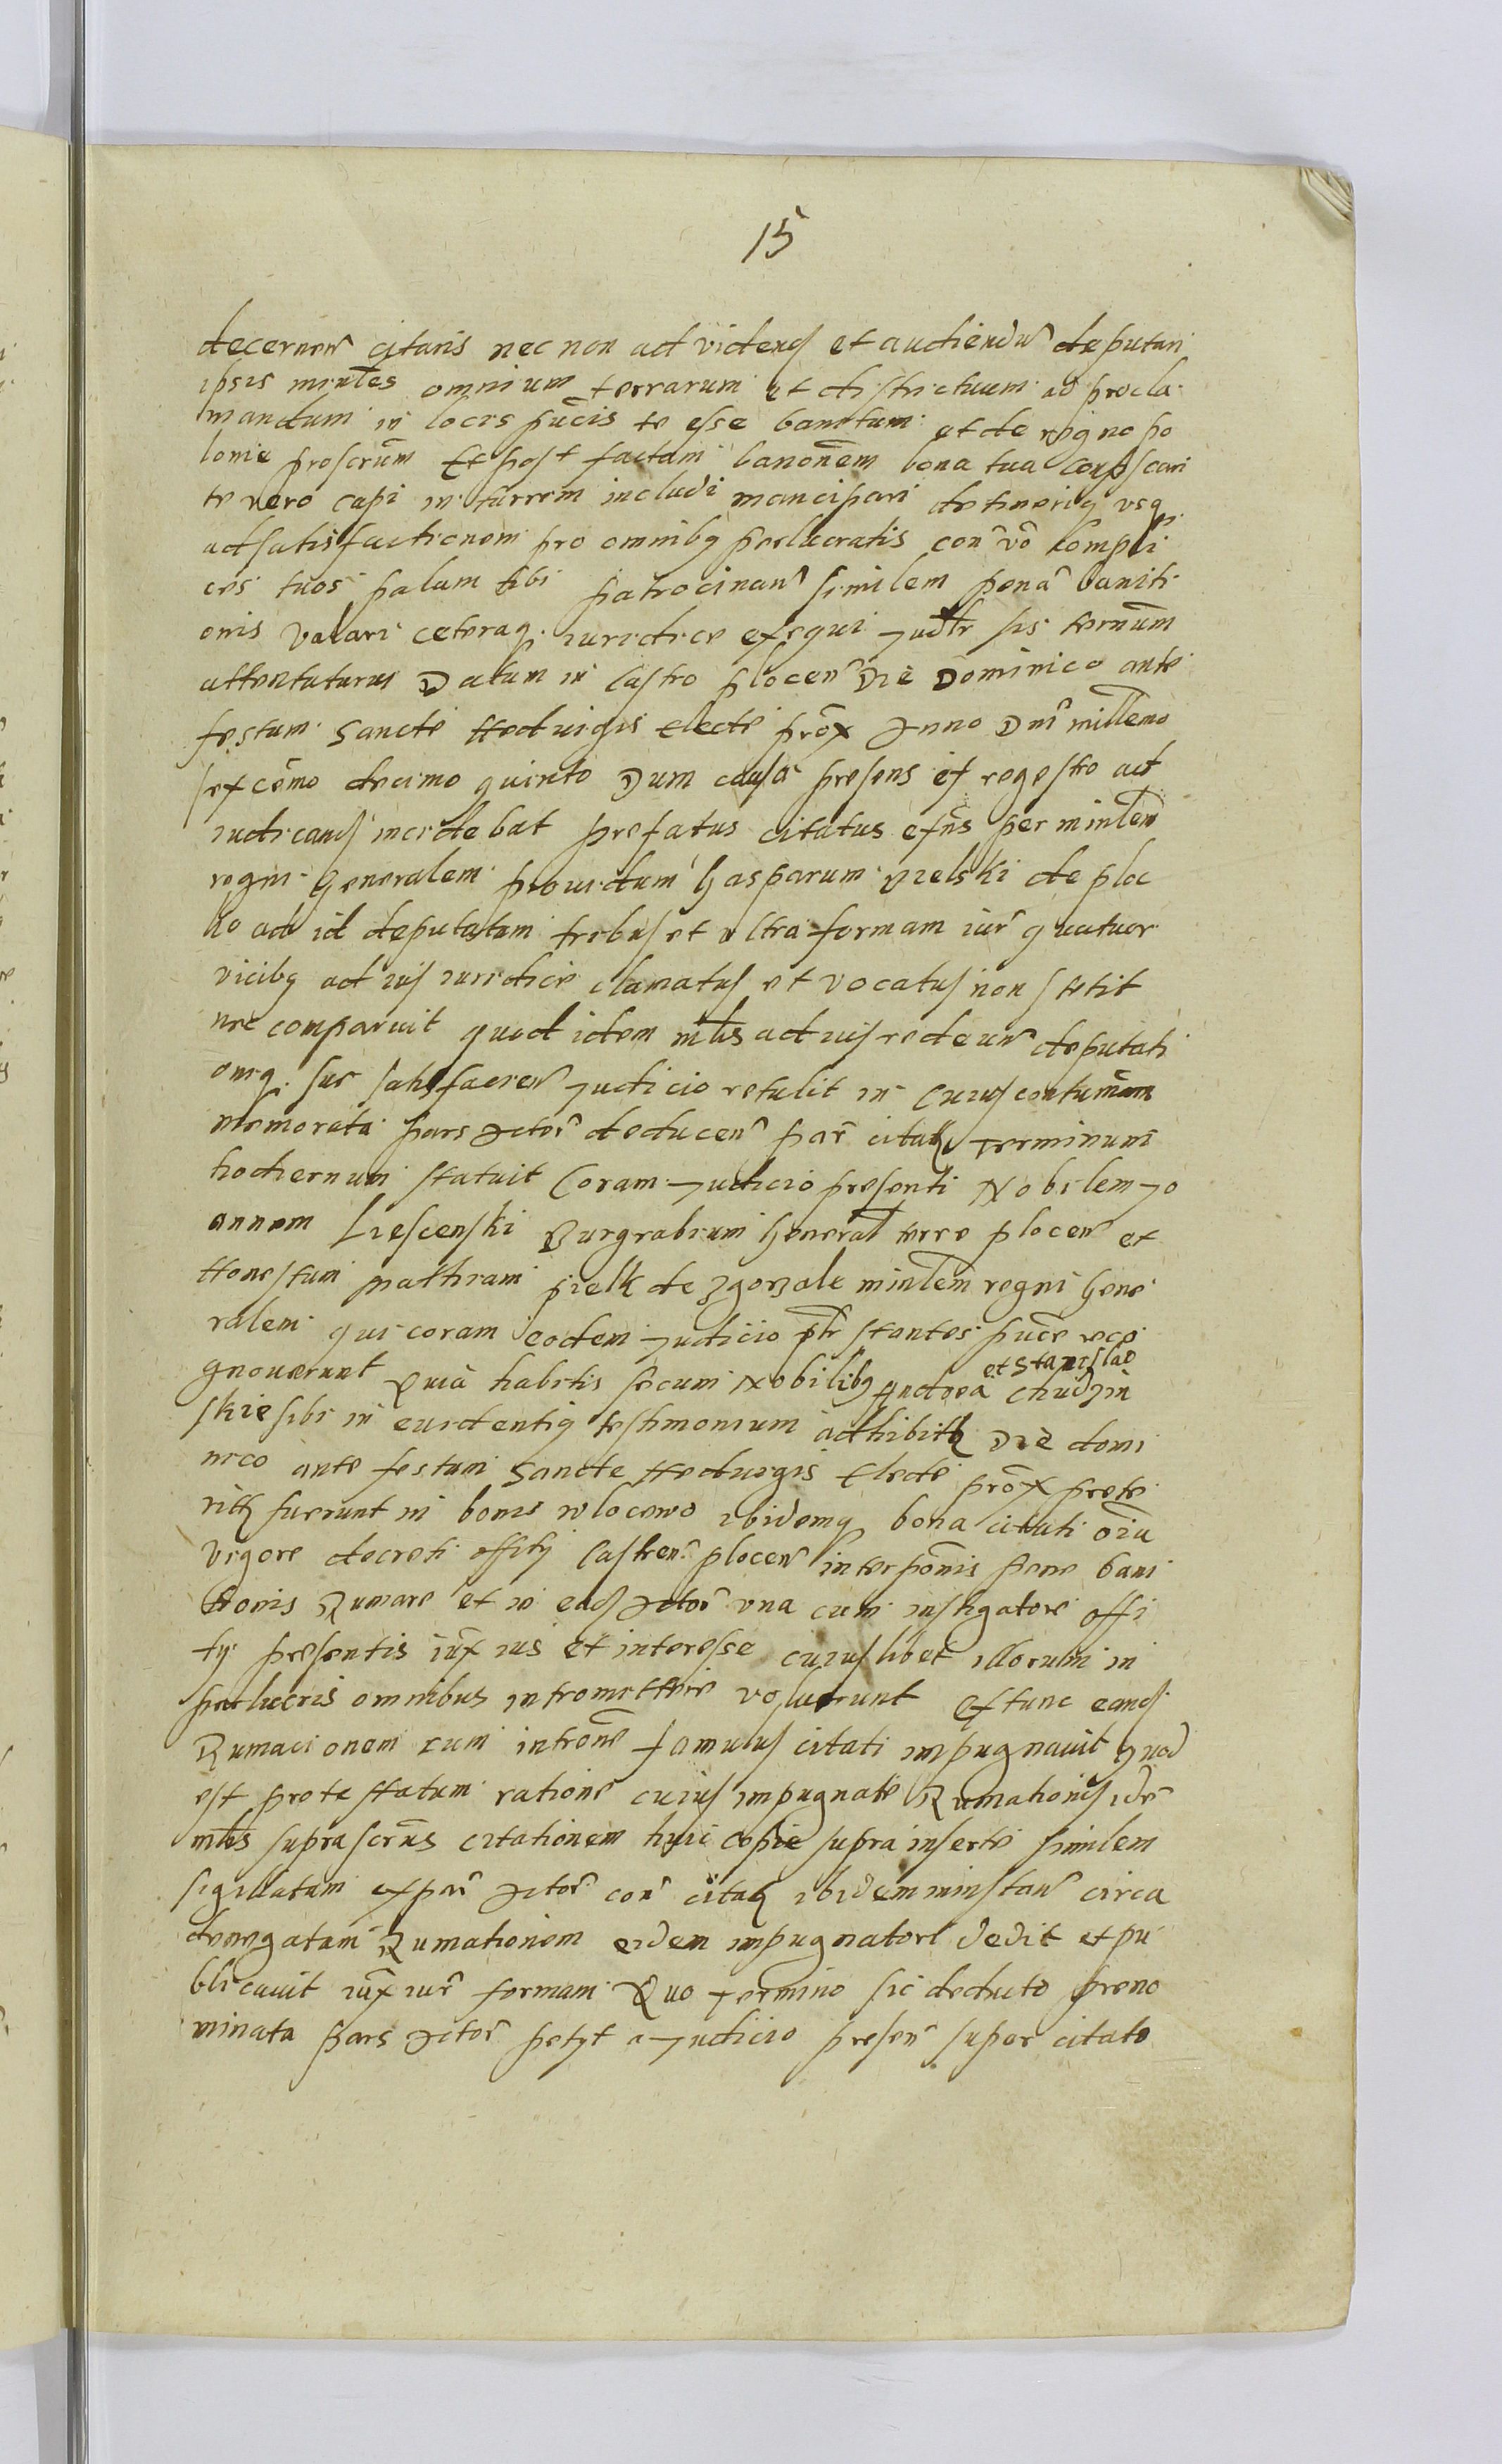 15
decernen̄ citaris nec non ad vidend et audiendū deputari
ipsis minrles omnium terrarum et districtuum ad procla
mandum in locis pucis te esse banitum et de regno po
lonie proscrum Et post factam banonem bona tua confiscari
te vero capi in turrem includi mancipari detineriq usq
ad satisfactionem pro omnibq perlucratis con vo compli
ces tuos palam tibi patrocinan similem pena baniti
onis vallari ceteraq iuridice exequi Judlr sis ternum
attentaturus Datum in Castro plocen Die Dominico ante
festum Sancte Heduigis Electe prox Anno Dni millemo
sexcemo decimo quinto Dum causa presens ex regestro ad
iudicand incidebat prefatus citatus exns per minlem
regni Generalem prouidum Gasparum Bielski de ploc
ko ad id deputatum tribus et ultra formam iur quatuor
vicibq ad ius iuridice clamatus et vocatus non stetit
nec comparuit quod idem mlis ad ius redeun deputati
oniq sue satisfacien Judicio retulit in Cuius contumam
memorata pars Actor deducen par citatq terminum
hodiernum statuit Coram Judicio presenti Nobilem Jo
annem Liescenski Burgrabium General terre plocen et
Honestum Mathiam pielk de Zgorzale minlem regni Gene
ralem qui coram eodem Judicio ptr stantes puce reco
gnouerunt Quia habitis secum Nobilibq Andrea et Stanislao Chudzin
skie sibi in euidentiq testimonium adhibitq Die domi
nico ante festum Sancte Heduigis Electe prox prete
ritq fuerunt in bonis wlocewo ibidemq bona citati oia
vigore decreti officy Castren plocen interponis pene bani
tionis Rumare et in ead Actor una cum instigatore offi
ty presentis iux ius et interesse cuiuslibet illorum in
perlucris omnibus intromittere voluerunt Extunc eand
Rumacionem cum introne famulus citati impugnauit Quod
est protestatum ratione cuius impugnate Rumationis ide
mlis suprascrus citationem huic copie supra inserte similem
sigillatam ex par Actor con citatq ibidem minstan circa
denegatam Rumationem eidem impugnatori dedit et pu
blicauit iux iur formam Quo termino sic deducto preno
minata pars Actor petyt a Judicio presen super citato